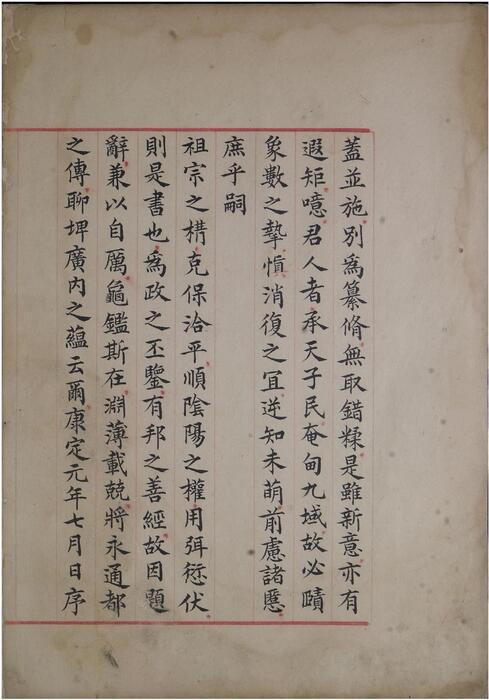 蓋並施別爲纂脩無取錯糅是雖新意亦有
遐矩噫君人者承天子民奄甸九域故必賾
象數之摯慎消復之宜逆知未萌前慮諸慝
庶乎嗣
祖宗之構克保洽平順陰陽之權用弭愆伏
則是書也爲政之丕鑒有邦之善經故因題
辭兼以自厲龜鑑斯在淵薄載兢將永通都
之傳聊埤廣内之蘊云爾康定元年七月日序